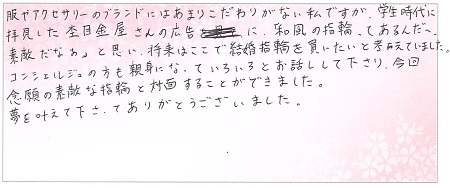 服やアクセサリーのブランドにはあまりこだわりがない私ですが、学生時代に
拝見した杢目金屋さんの広告に、和風の指輪ってあるんだへ、
素敵だなぁと思い、将来はここで結婚指輪を買いたいと考えていました。
コンシェルジュの方も親身になっていろいろとお話しして下さり、今回
念願の素敵な指輪と対面することができました。
夢を叶えて下さってありがとうございました。